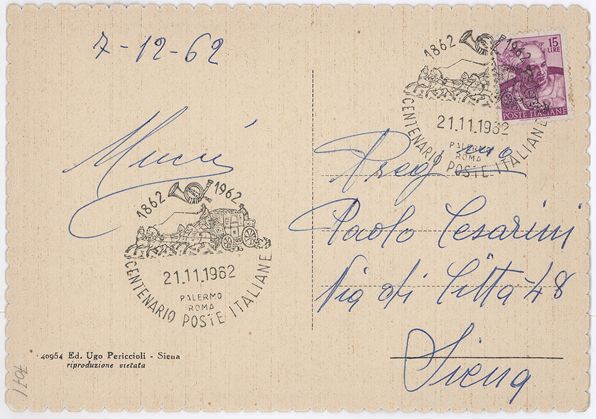 7-12-62
1862 1962
21.11.1962
PALERMO
ROMA
CENTENARIO POSTE ITALIANE
15
LIRE
POSTE ITALIANE
1862 1962
21.11.1962
PALERMO
ROMA
CENTENARIO POSTE ITALIANE
Preg
Paolo Cesarini
Via di Città 48
Siena
40964 Ed. Ugo Periccioli - Siena
riproduzione vietata